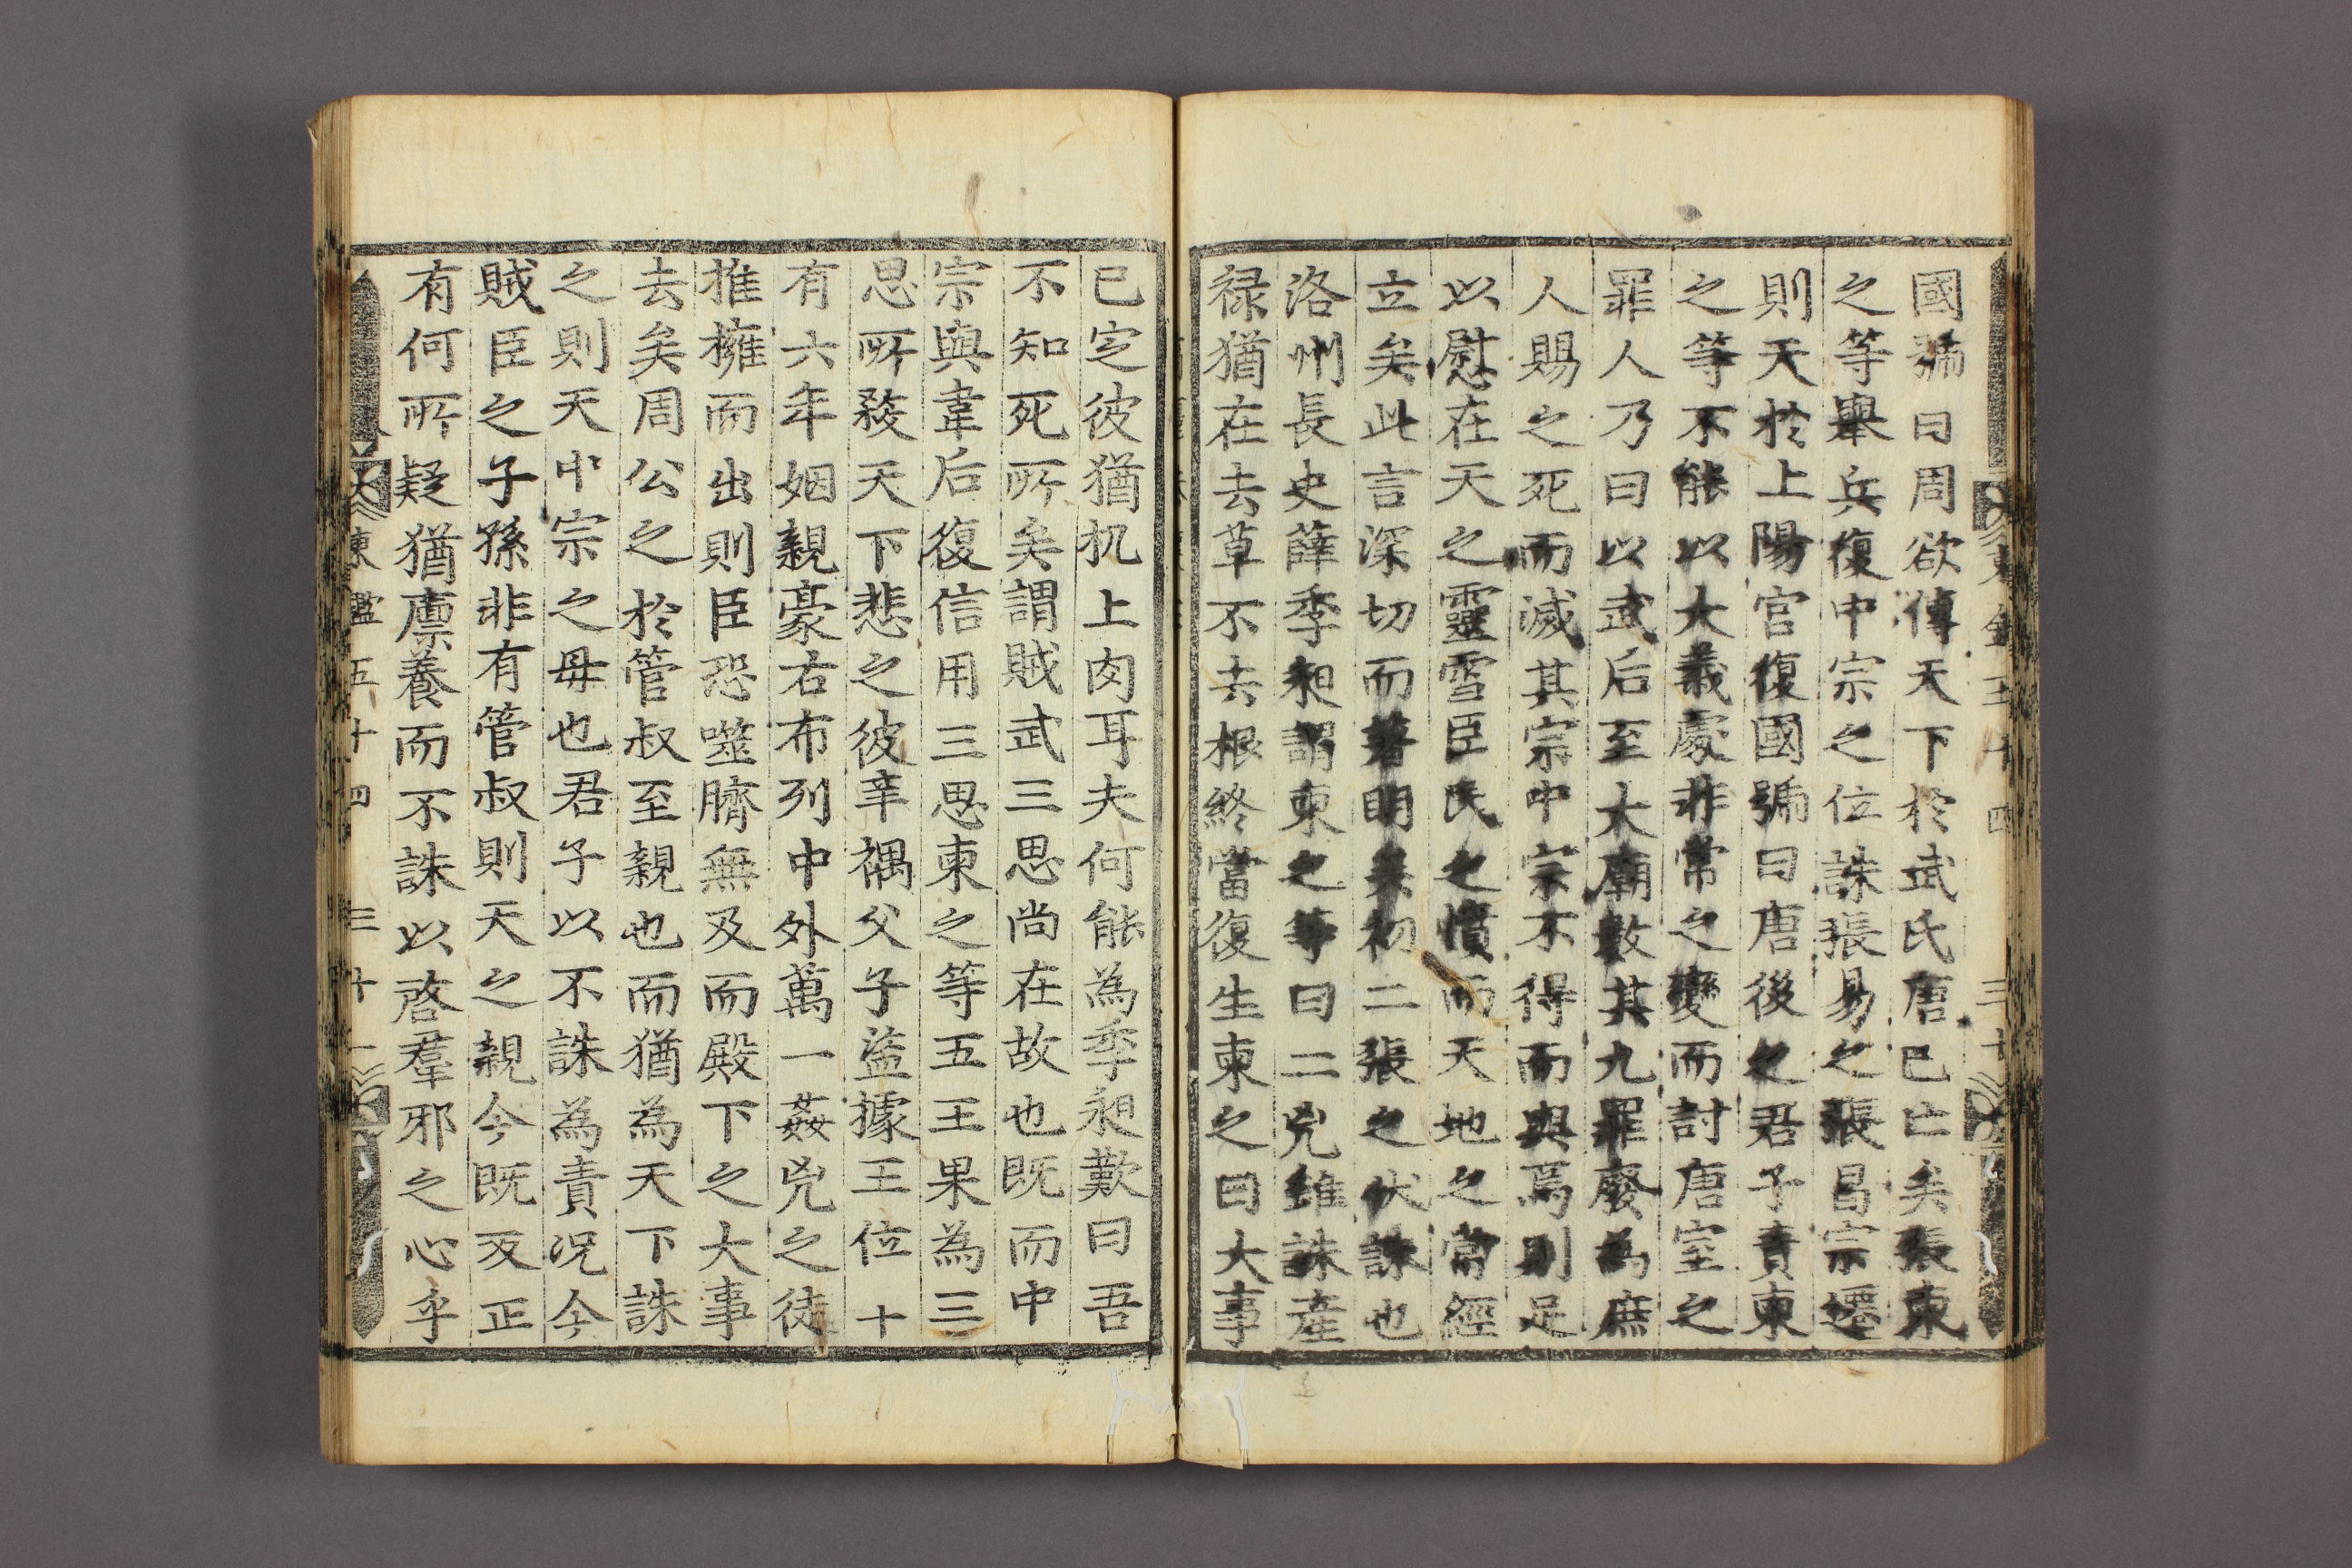 國號曰周欲傳天下於武氏唐已亡矣張柬
之等舉兵復中宗之位誅張易之張昌宗遷
則天於上陽宮復國號曰唐後之君子責柬
之等不能以大義處非常之變而討唐室之
罪人乃曰以武后至大廟數其九罪廢為庶
人賜之死而滅其宗中宗不得而與焉則足
以慰在天之靈雪臣民之憤而天地之常經
立矣此言深切而著明矣初二張之伏誅也
洛州長史薛季昶謂柬之等曰二兇雖誅產
祿猶在去草不去根終當復生柬之曰大事
已定彼猶机上肉耳夫何能為季昶歎曰吾
不知死所矣謂賊武三思尚在故也既而中
宗與韋后復信用三思柬之等五王果為三
思所殺天下悲之彼辛禑父子盜據王位十
有六年姻親豪右布列中外萬一姦兇之徒
推擁而出則臣恐噬臍無及而殿下之大事
去矣周公之於管叔至親也而猶為天下誅
之則天中宗之母也君子以不誅為責況今
賊臣之子孫非有管叔則天之親今既反正
有何所疑猶廩養而不誅以啓羣邪之心乎
東鑑五十四 三十一